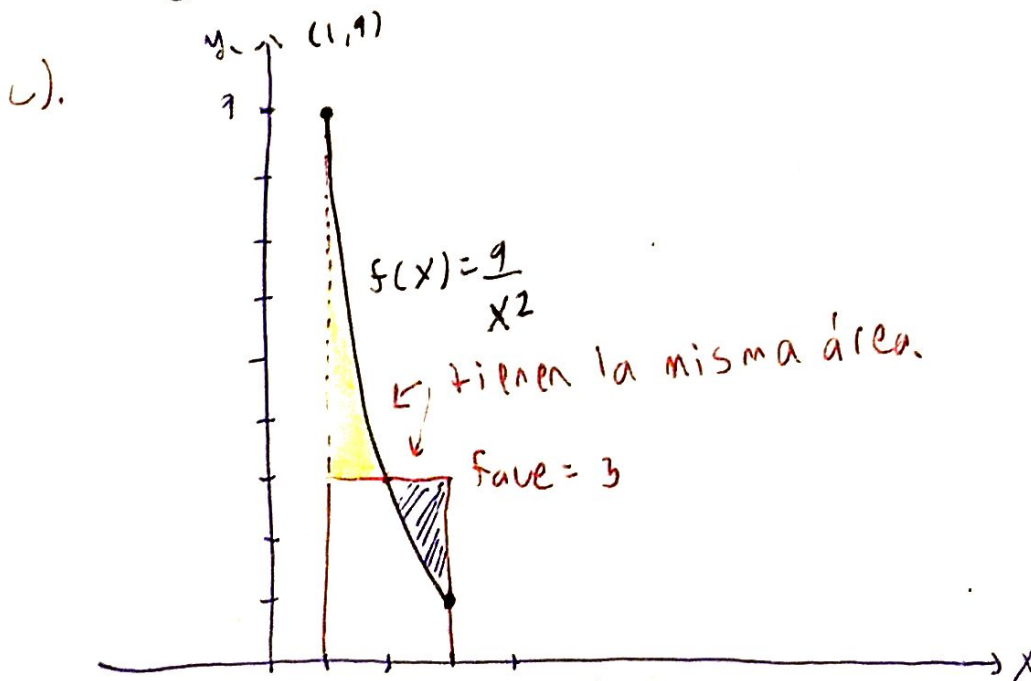 y (1,9)
c).
9
f(x) = 9
x2
tienen la misma área.
fave = 3
x